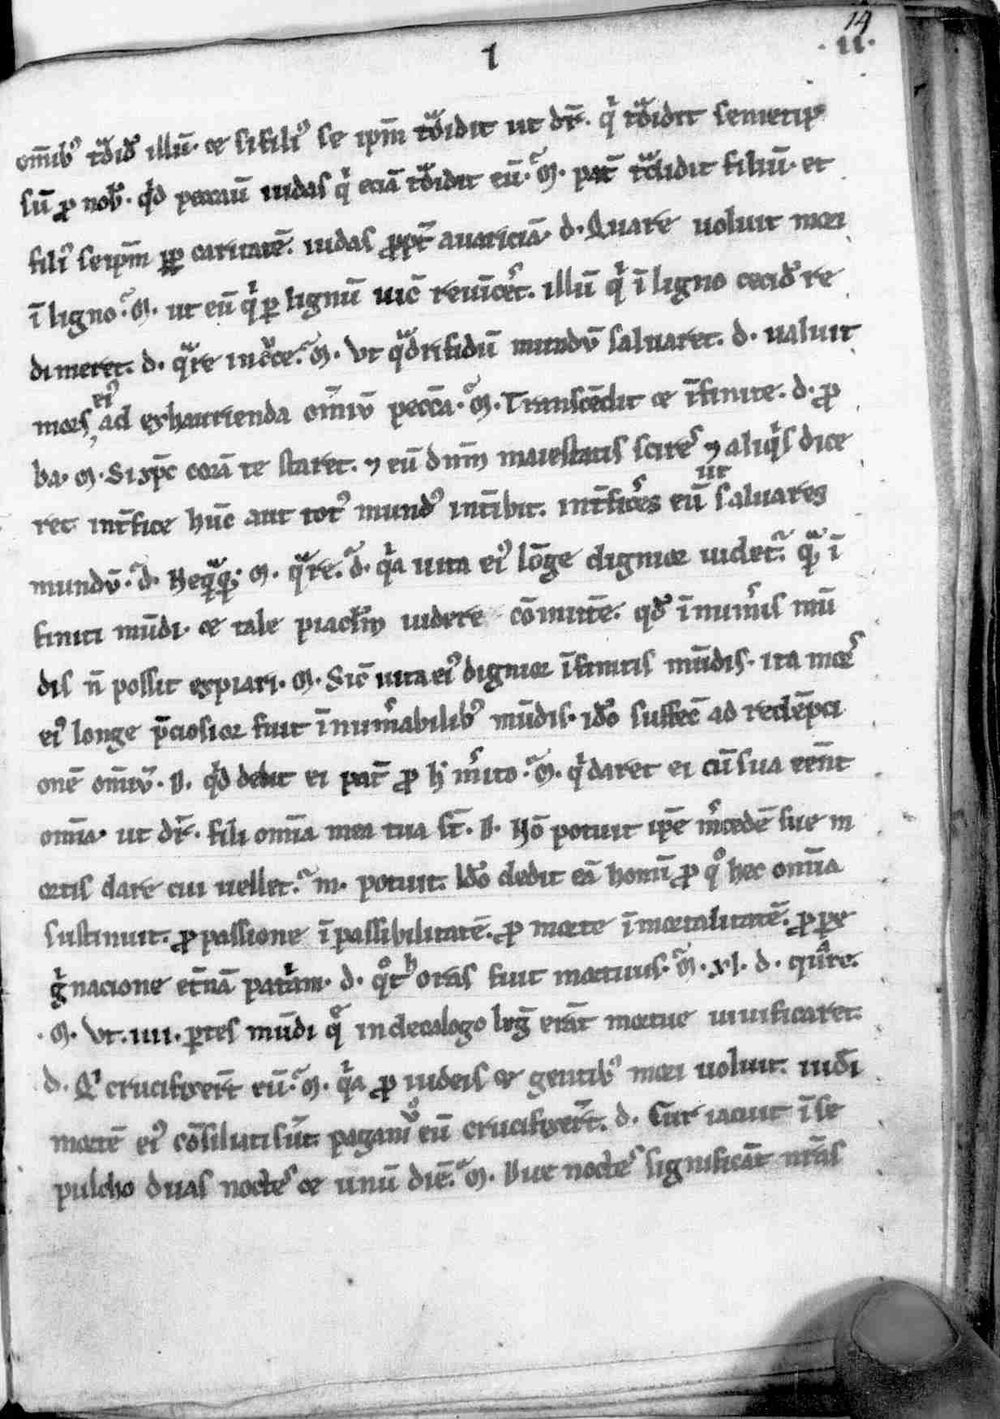 14
.ii.
1
om̄ibꝰ tͣdidꝰ illū. ⁊ si filiꝰ se ipm̄ tͣdidit ut dr̄. qⁱ tͣdidit semetip
sū ꝓ nob̄. qͥd peccauit iudas qⁱ eciā tͣdidit eū. m̄. pat̄ tͣdidit filiū. et
filiꝰ seipm̄ ꝓpt̄ caritatē. iudas ꝓpt̄ auariciā. d. Quare uoluit mori
ī ligno. m̄. ut eū qⁱ ꝑ lignū uic̄ reuīcet̉. illū qⁱ ī ligno cecidꝰ re
dimeret. d. qͣre in cͬce. m̄. Vt qͣdrifidū mundū saluaret. d. ualuit
mors eiꝰ ad exhaurienda om̄iū peccā. m̄. Transcēdit ⁊ īfinite. d. ꝓ
ba. m. Si xp̄c corā te staret. ⁊ eū dnm̄ maiestatis scires ⁊ aliqͥs dice
ret int̄fice hūc aut totꝰ mundꝰ int̄ibit. int̄fic̉es eū ut saluares
mundū. d. Neqͣqͣ; m. qͣre. d. qͥa uita eiꝰ lōge dignior uidet̉. qͣ; ī
finiti mūdi. ⁊ tale piacl̄m uidere cōmittē. qd̄ īnum̉is mū
dis n̄ possit expiari. m. Sic̄ uita eiꝰ dignior īfinitis mūdis. ita mors
eiꝰ longe p̄ciosior fuit īnum̉abilibꝰ mūdis. id̄o suffec̄ ad redēpci
onē om̄iū. D. qͥd dedit ei pat̄ ꝓ h̄ m̉ito. m̄. qͥ daret ei cū sua eēnt
omīa. ut dr̄. fili omīa mea tua st̄. D. Nō potuit ip̄e m̉cedē sue m
ortis dare cui uellet. m. potuit. Id̄o dedit eā homī ꝓ qͦ hec omīa
sustinuit. ꝓ passione īpassibilitatē. ꝓ morte īmortalitatē. ꝓ ꝑe
gͥnacione et̄nā patͥam. d. qͦt horas fuit mortuus. m̄. xl. d. quͣre.
. m. Vt .iiii. ꝑtes mūdi qͣ in decalogo leḡ erāt mortue uiuificaret.
d. Qⁱ crucifixer̄t eū. m̄. qͥa ꝓ iudeis ⁊ gentibꝰ mori uoluit. iudī
mortē eiꝰ cōsiliati sūt. pagani ūo eū crucifixer̄t. d. Cur iacuit ī se
pulcho duas noctes ⁊ unū diē. m̄. Due noctes significāt nr̄as